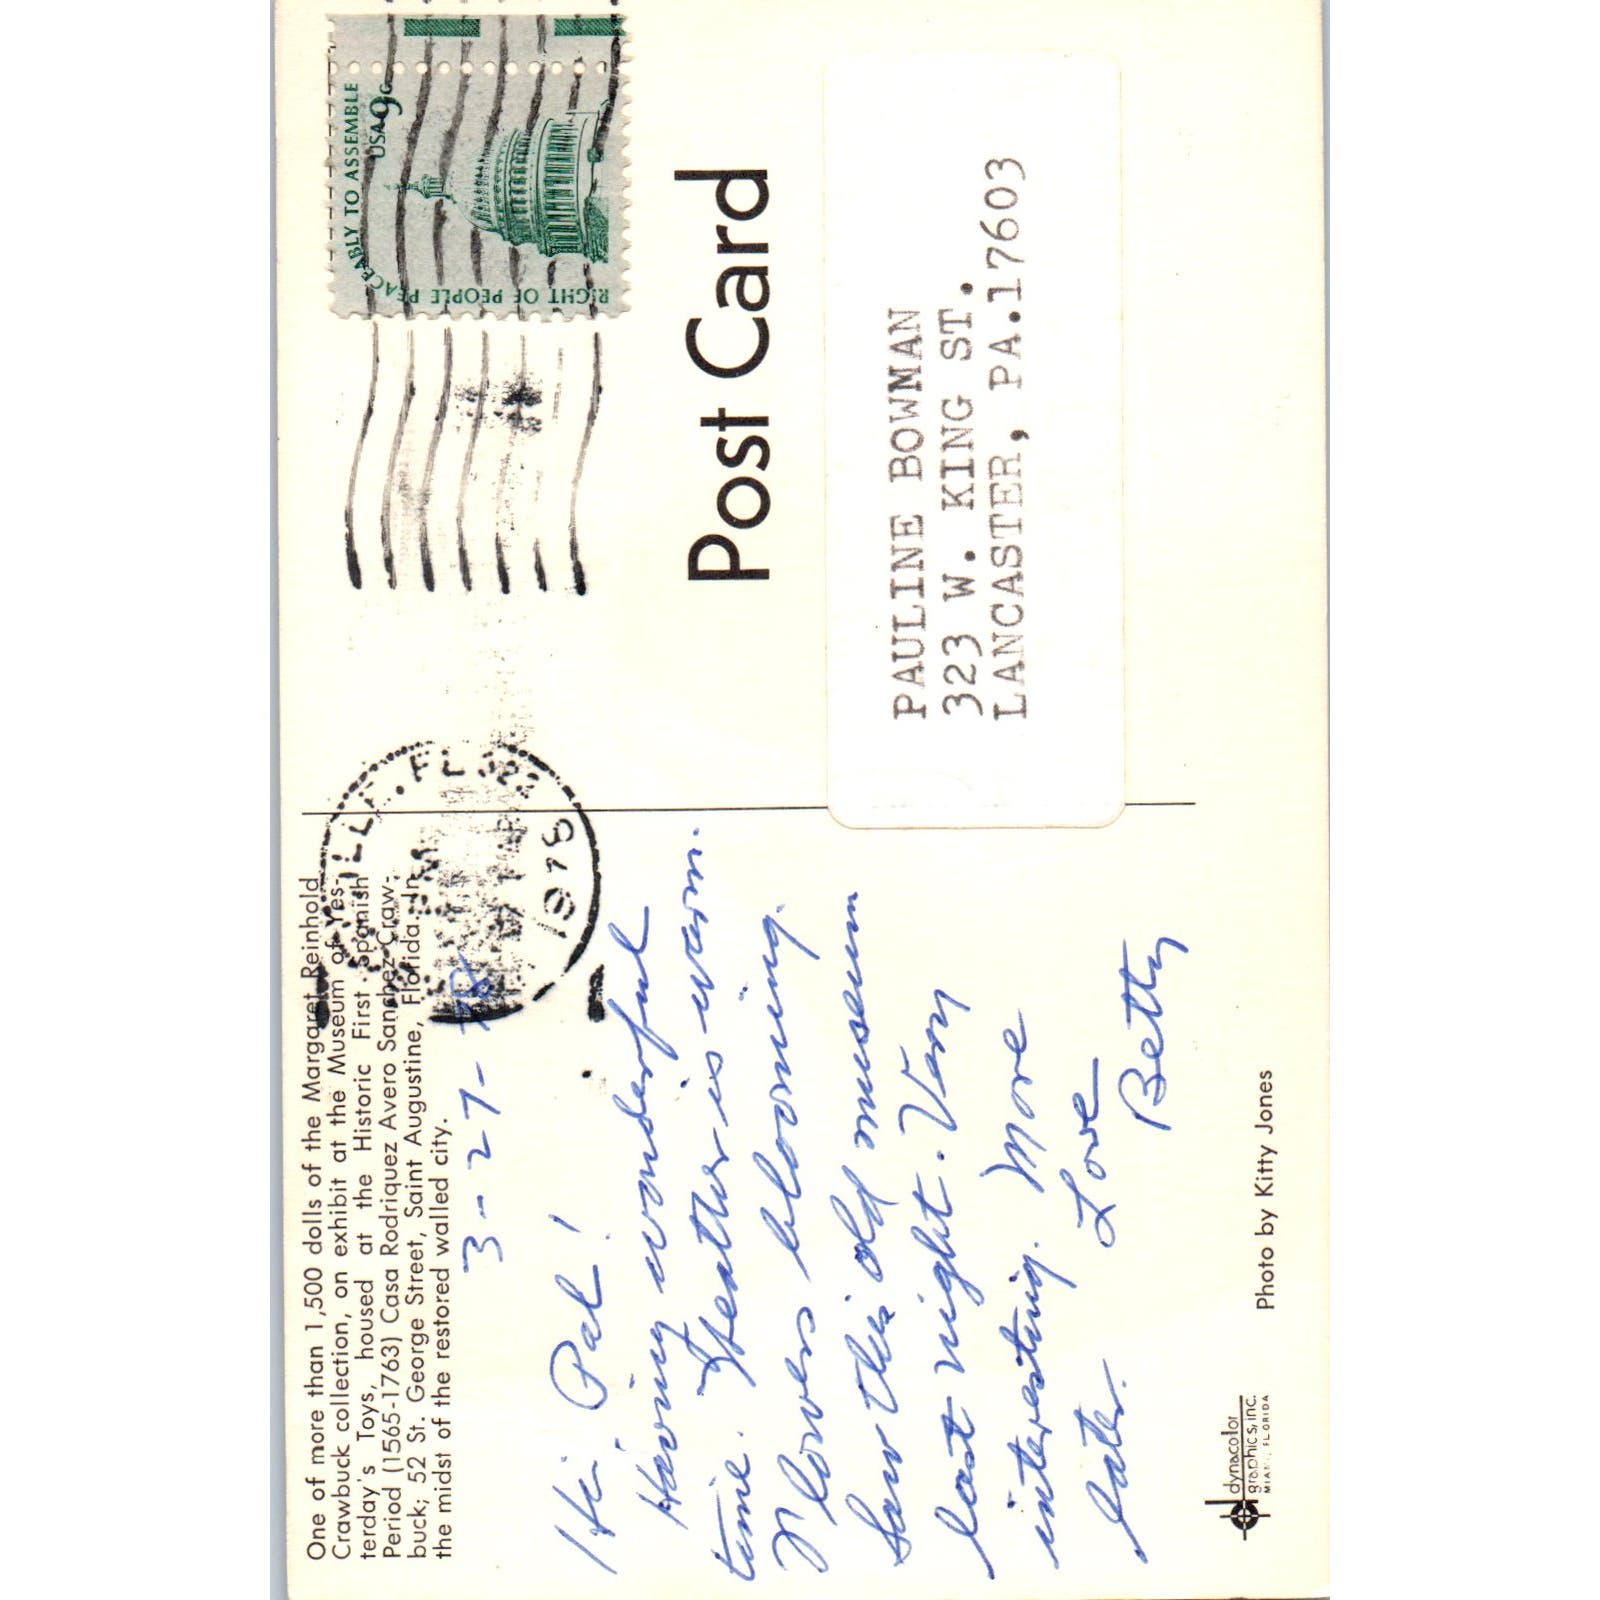 One of more than 1,500 dolls of the Margaret Reinhold
Crawbuck collection, on exhibit at the Museum of Yes-
terday's Toys, housed at the Historic First Spanish
Period (1565-1763) Casa Rodriquez Avero Sanchez-Craw-
buck; 52 St. George Street, Saint Augustine, Florida. In
the midst of the restored walled city.
3-27-78
Hi Pal!
Having wonderful
time. Weather is warm.
Flowers blooming.
Saw this old museum
last night. Very
interesting. More
later.
Love
Betty
dynacolor
graphics, inc.
MIAMI, FLORIDA
Photo by Kitty Jones
VILLE, FL 322
PM
1978
RIGHT OF PEOPLE PEACEABLY TO ASSEMBLE
USA 9c
Post Card
PAULINE BOWMAN
323 W. KING ST.
LANCASTER, PA.17603